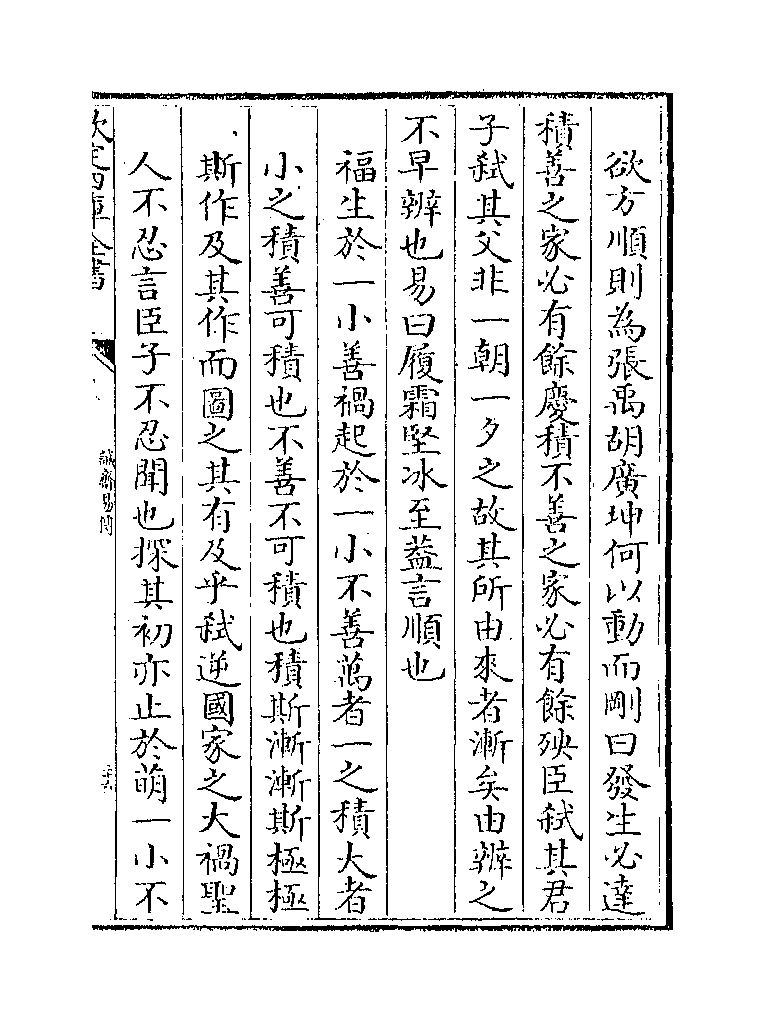 欲方順則為張禹胡廣坤何以動而剛曰發生必達
積善之家必有餘慶積不善之家必有餘殃臣弑其君
子弑其父非一朝一夕之故其所由來者漸矣由辨之
不早辨也易曰履霜堅冰至蓋言順也
福生於一小善禍起於一小不善萬者一之積大者
小之積善可積也不善不可積也積斯漸漸斯極極
斯作及其作而圖之其有及乎弑逆國家之大禍聖
人不忍言臣子不忍聞也探其初亦止於萌一小不
欽定四庫全書
誠齋易傳